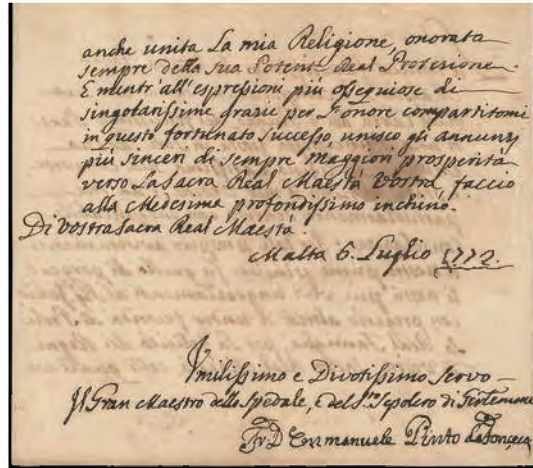 anche unita La mia Religione, onorata
sempre della sua Potent. Real Protezione.
E mentr'all'espressioni più ossequiose di
singolarissime grazie per L'onore compartitomi
in questo fortunato successo, unisco gli annunzj
più sinceri di sempre maggiori prosperità
verso La Sacra Real Maestà Vostra, faccio
alla Medesima profondissimo inchino.
Di Vostra Sacra Real Maestà.
Malta 6. Luglio 1772.
Umilissimo e Divotissimo Servo
Il Gran Maestro dello Spedale, e del S.to Sepolcro di
Fr. D. Emmanuele Pinto